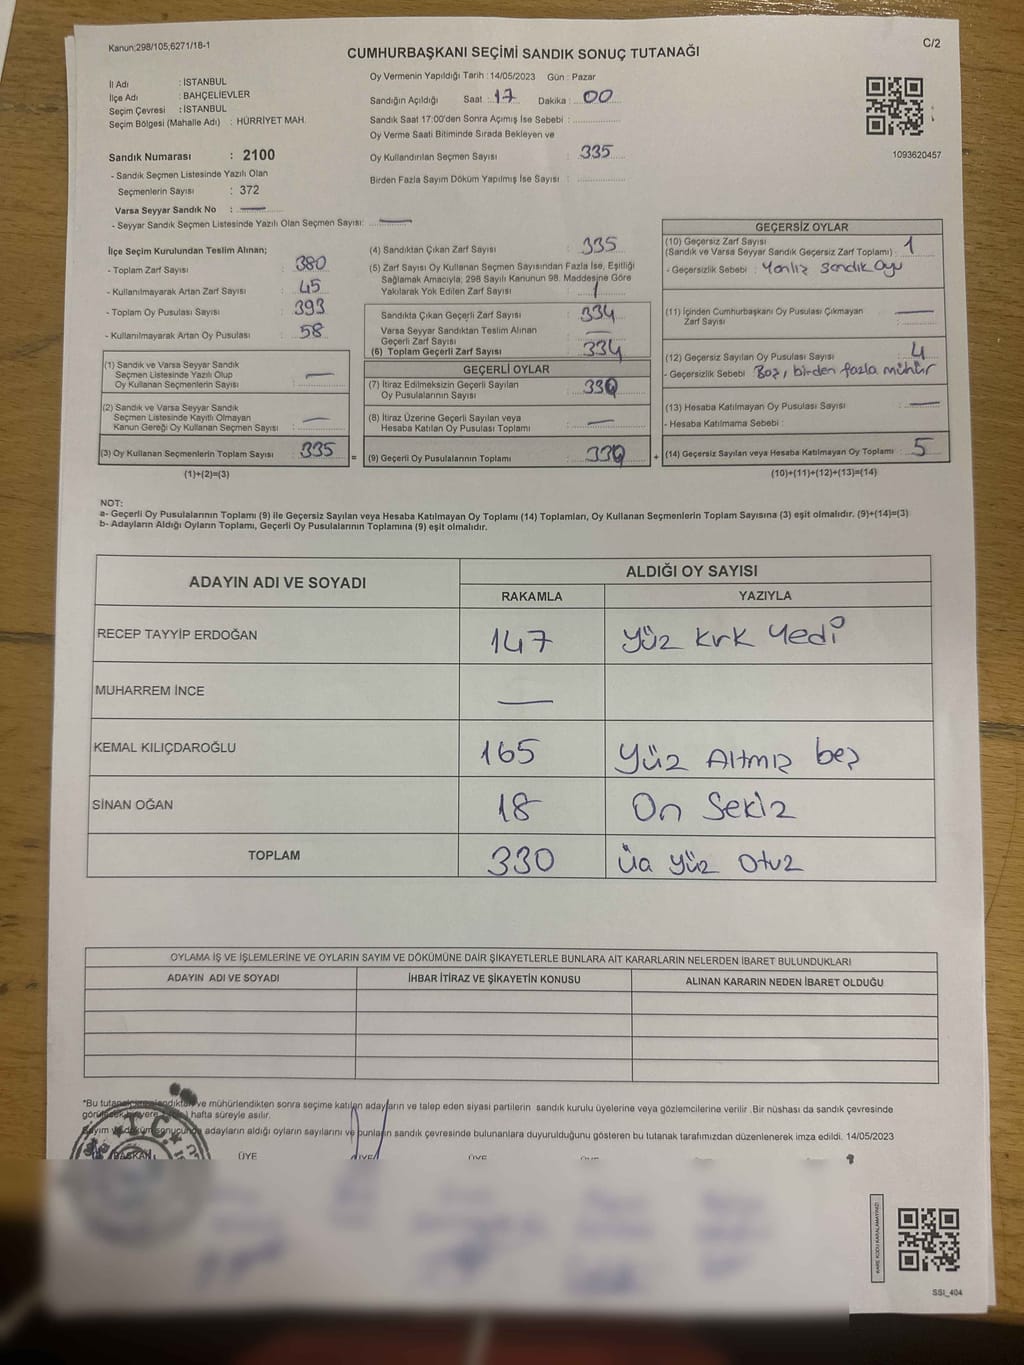 Kanun;298/105;6271/18-1
C/2
CUMHURBAŞKANI SEÇİMİ SANDIK SONUÇ TUTANAĞI
İl Adı : İSTANBUL
İlçe Adı : BAHÇELİEVLER
Seçim Çevresi : İSTANBUL
Seçim Bölgesi (Mahalle Adı) : HÜRRİYET MAH.
Sandık Numarası : 2100
- Sandık Seçmen Listesinde Yazılı Olan
Seçmenlerin Sayısı : 372
Varsa Seyyar Sandık No : —
- Seyyar Sandık Seçmen Listesinde Yazılı Olan Seçmen Sayısı: —
Oy Vermenin Yapıldığı Tarih : 14/05/2023 Gün : Pazar
Sandığın Açıldığı Saat : 17 Dakika : 00
Sandık Saat 17:00'den Sonra Açımış İse Sebebi :
Oy Verme Saati Bitiminde Sırada Bekleyen ve
Oy Kullandırılan Seçmen Sayısı : 335
Birden Fazla Sayım Döküm Yapılmış İse Sayısı :
1093620457
İlçe Seçim Kurulundan Teslim Alınan;
- Toplam Zarf Sayısı : 380
- Kullanılmayarak Artan Zarf Sayısı : 45
- Toplam Oy Pusulası Sayısı : 393
- Kullanılmayarak Artan Oy Pusulası : 58
(1) Sandık ve Varsa Seyyar Sandık
Seçmen Listesinde Yazılı Olup
Oy Kullanan Seçmenlerin Sayısı : —
(2) Sandık ve Varsa Seyyar Sandık
Seçmen Listesinde Kayıtlı Olmayan
Kanun Gereği Oy Kullanan Seçmen Sayısı : —
(3) Oy Kullanan Seçmenlerin Toplam Sayısı : 335
(1)+(2)=(3)
(4) Sandıktan Çıkan Zarf Sayısı : 335
(5) Zarf Sayısı Oy Kullanan Seçmen Sayısından Fazla İse, Eşitliği
Sağlamak Amacıyla, 298 Sayılı Kanunun 98. Maddesine Göre
Yakılarak Yok Edilen Zarf Sayısı : 1
Sandıkta Çıkan Geçerli Zarf Sayısı : 334
Varsa Seyyar Sandıktan Teslim Alınan
Geçerli Zarf Sayısı : —
(6) Toplam Geçerli Zarf Sayısı : 334
GEÇERLİ OYLAR
(7) İtiraz Edilmeksizin Geçerli Sayılan
Oy Pusulalarının Sayısı : 330
(8) İtiraz Üzerine Geçerli Sayılan veya
Hesaba Katılan Oy Pusulası Toplamı : —
= (9) Geçerli Oy Pusulalarının Toplamı : 330 +
GEÇERSİZ OYLAR
(10) Geçersiz Zarf Sayısı
(Sandık ve Varsa Seyyar Sandık Geçersiz Zarf Toplamı) : 1
- Geçersizlik Sebebi : Yanlız sandık oyu
(11) İçinden Cumhurbaşkanı Oy Pusulası Çıkmayan
Zarf Sayısı : —
(12) Geçersiz Sayılan Oy Pusulası Sayısı : 4
- Geçersizlik Sebebi Boş, birden fazla mühür
(13) Hesaba Katılmayan Oy Pusulası Sayısı : —
- Hesaba Katılmama Sebebi :
(14) Geçersiz Sayılan veya Hesaba Katılmayan Oy Toplamı : 5
(10)+(11)+(12)+(13)=(14)
NOT:
a- Geçerli Oy Pusulalarının Toplamı (9) ile Geçersiz Sayılan veya Hesaba Katılmayan Oy Toplamı (14) Toplamları, Oy Kullanan Seçmenlerin Toplam Sayısına (3) eşit olmalıdır. (9)+(14)=(3)
b- Adayların Aldığı Oyların Toplamı, Geçerli Oy Pusulalarının Toplamına (9) eşit olmalıdır.
ADAYIN ADI VE SOYADI
ALDIĞI OY SAYISI
RAKAMLA YAZIYLA
RECEP TAYYİP ERDOĞAN 147 Yüz kırk yedi
MUHARREM İNCE —
KEMAL KILIÇDAROĞLU 165 Yüz Altmış beş
SİNAN OĞAN 18 On Sekiz
TOPLAM 330 Üç yüz Otuz
OYLAMA İŞ VE İŞLEMLERİNE VE OYLARIN SAYIM VE DÖKÜMÜNE DAİR ŞİKAYETLERLE BUNLARA AİT KARARLARIN NELERDEN İBARET BULUNDUKLARI
ADAYIN ADI VE SOYADI
İHBAR İTİRAZ VE ŞİKAYETİN KONUSU
ALINAN KARARIN NEDEN İBARET OLDUĞU
*Bu ve mühürlendikten sonra seçime katılan adayların ve talep eden siyasi partilerin sandık kurulu üyelerine veya gözlemcilerine verilir .Bir nüshası da sandık çevresinde
hafta süreyle asılır.
adayların aldığı oyların sayılarını ve bunların sandık çevresinde bulunanlara duyurulduğunu gösteren bu tutanak tarafımızdan düzenlenerek imza edildi. 14/05/2023
T.C.
BAŞKAN ÜYE ÜYE ÜYE
KARE KODU KARALAMAYINIZ!
SSI_404